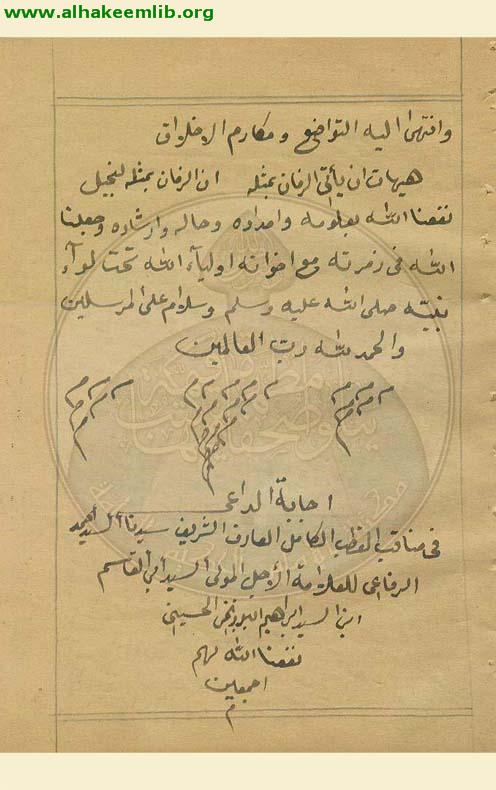 www.alhakeemlib.org
وانتهى اليه التواضع ومكارم الاخلاق
هيهات ان يأتى الزمان بمثله ان الزمان بمثله لبخيل
نفعنا الله بعلومه وامداده وحاله وارشاده وجعلنا
الله فى زمرته ومع اخوانه اولياء الله تحت لوآء
نبيّه صلى الله عليه وسلم وسلام على المرسلين
والحمد لله رب العالمين
اجابة الداعى
فى مناقب القطب الكامل العارف الشريف سيدنا السيد احمد
الرفاعى للعلامة الأجل المولى السيد ابى القاسم
ابن السيد ابراهيم البرزنجى الحسينى
نفعنا الله بهم
اجمعين
م